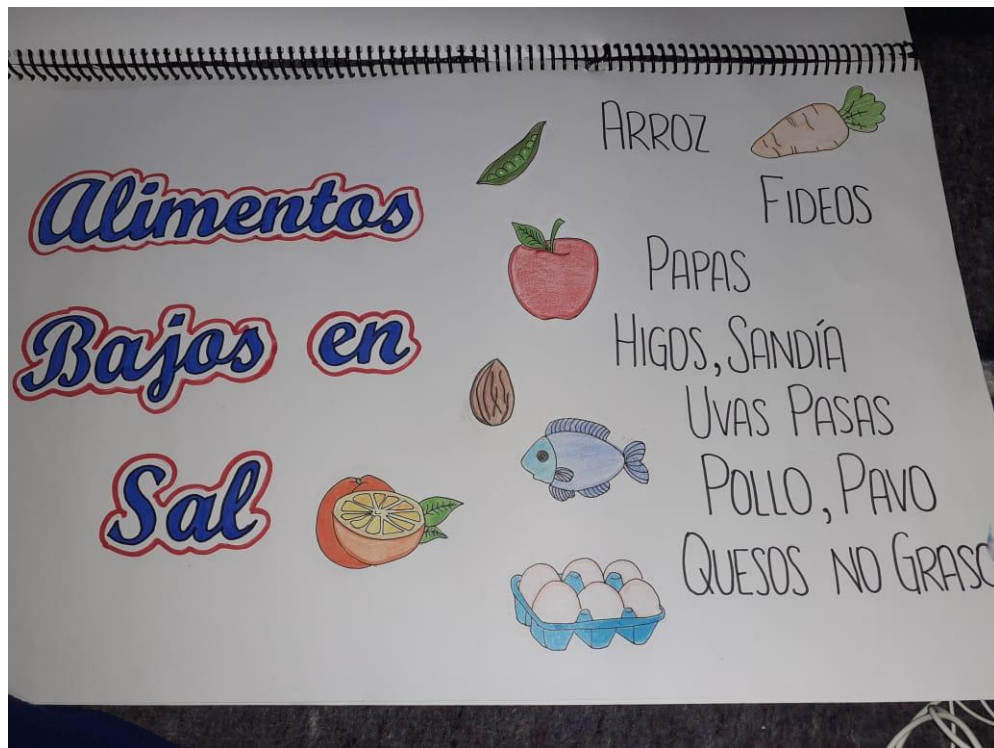 Alimentos
Bajos en
Sal
ARROZ
FIDEOS
PAPAS
HIGOS, SANDÍA
UVAS PASAS
POLLO, PAVO
QUESOS NO GRASO